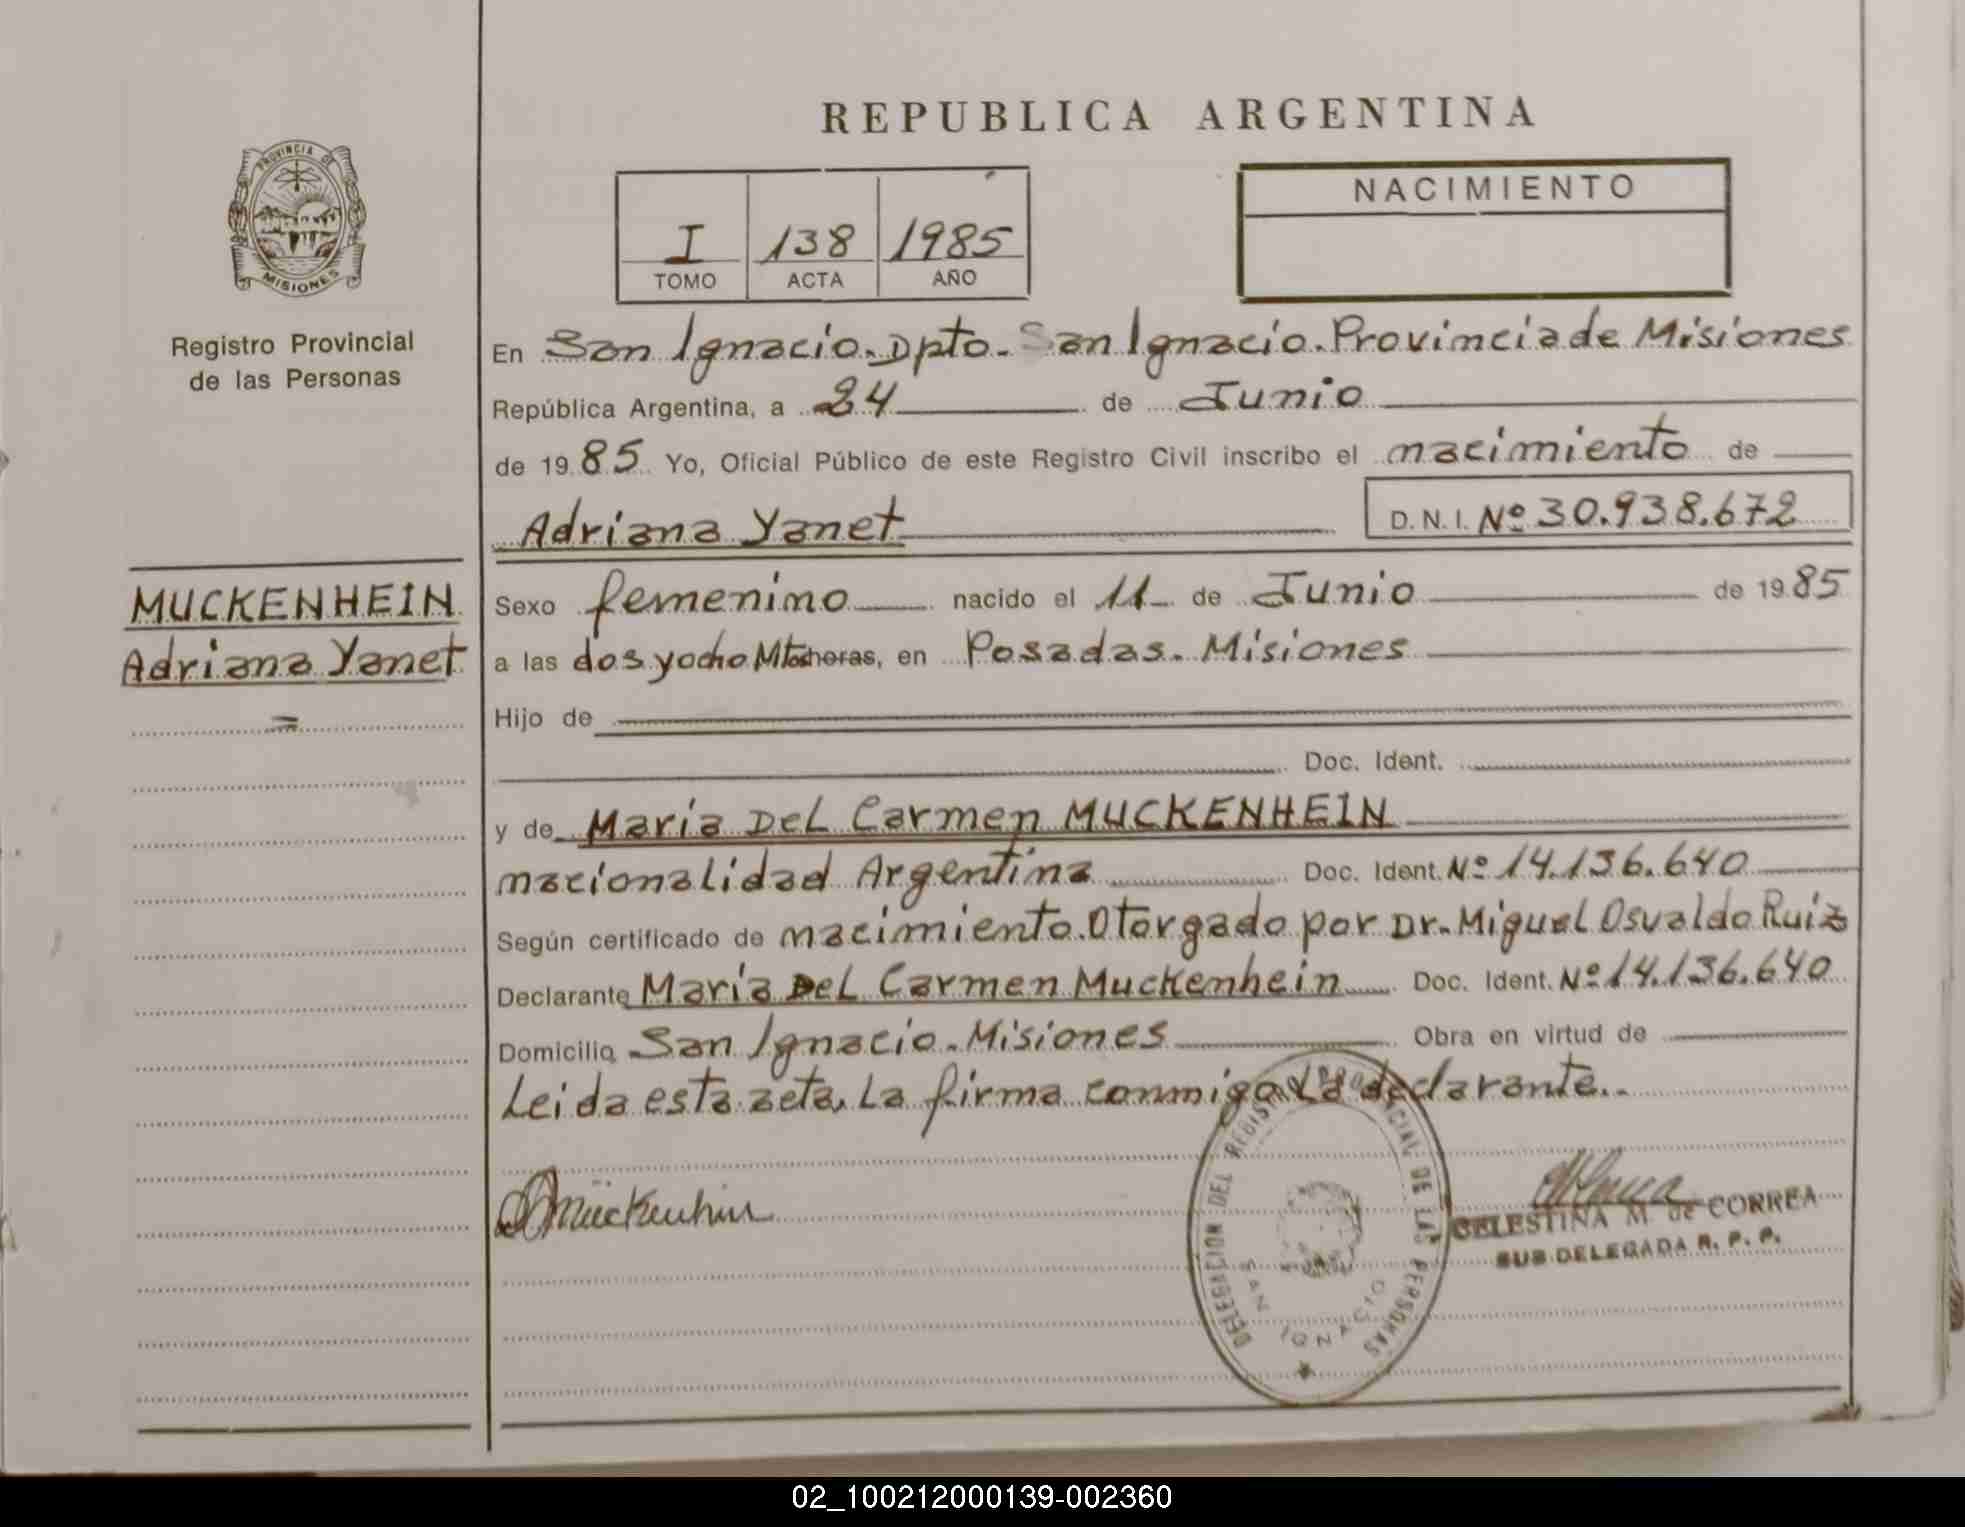 REPUBLICA ARGENTINA
PROVINCIA DE
MISIONES
Registro Provincial
de las Personas
I 138 1985
TOMO ACTA AÑO
NACIMIENTO
En San Ignacio. Dpto. San Ignacio. Provincia de Misiones
República Argentina, a 24 de Junio
de 1985 Yo, Oficial Público de este Registro Civil inscribo el nacimiento de
Adriana Yanet D.N.I. Nº 30.938.672
MUCKENHEIN
Adriana Yanet
Sexo femenino nacido el 11 de Junio de 1985
a las dos y ocho Mtos horas, en Posadas. Misiones
Hijo de
Doc. Ident.
y de María DeL Carmen MUCKENHEIN
nacionalidad Argentina Doc. Ident. Nº 14.136.640
Según certificado de nacimiento. Otorgado por Dr. Miguel Osvaldo Ruiz
Declarante María DeL Carmen Muckenhein Doc. Ident. Nº 14.136.640
Domicilio San Ignacio. Misiones Obra en virtud de
Leida esta acta, La firma conmigo La declarante..
Muckenhein
DELEGACION DEL REGISTRO PROVINCIAL DE LAS PERSONAS
SAN IGNACIO
CELESTINA M. de CORREA
SUB DELEGADA R. P. P.
02_100212000139-002360